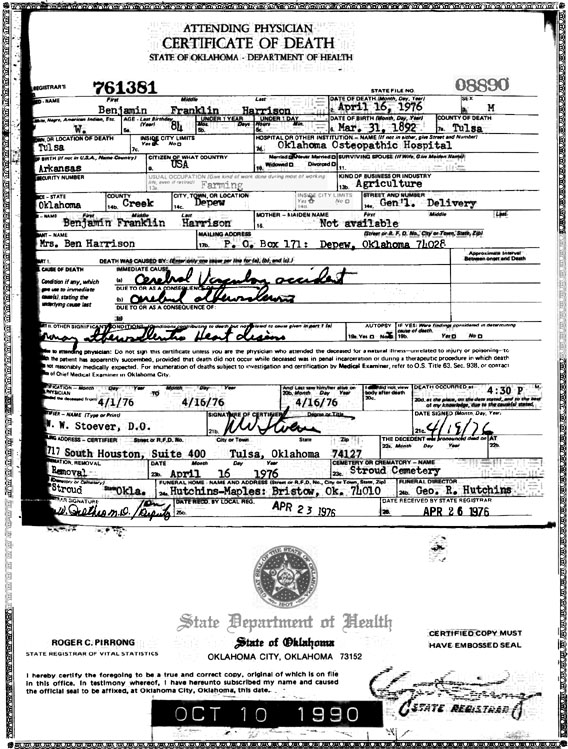 ATTENDING PHYSICIAN
CERTIFICATE OF DEATH
STATE OF OKLAHOMA - DEPARTMENT OF HEALTH
REGISTRAR'S 761381 STATE FILE NO. 08890
- NAME First Middle Last DATE OF DEATH (Month, Day, Year) SEX
Benjamin Franklin Harrison 2. April 16, 1976 3. M
AGE - Last Birthday (Years) UNDER 1 YEAR UNDER 1 DAY DATE OF BIRTH (Month, Day, Year) COUNTY OF DEATH
W. 5a. 84 5b. 5c. 6. Mar. 31, 1892 7a. Tulsa
OR LOCATION OF DEATH INSIDE CITY LIMITS HOSPITAL OR OTHER INSTITUTION - NAME (If not in either, give Street and Number)
Tulsa 7c. Yes No 7d. Oklahoma Osteopathic Hospital
OF BIRTH (If not in U.S.A., Name Country) CITIZEN OF WHAT COUNTRY Married Never Married SURVIVING SPOUSE (If Wife, Give Maiden Name)
Arkansas USA Widowed Divorced 11.
SECURITY NUMBER USUAL OCCUPATION (Give kind of work done during most of working life, even if retired) KIND OF BUSINESS OR INDUSTRY
Farming 13b. Agriculture
- STATE COUNTY CITY, TOWN, OR LOCATION INSIDE CITY LIMITS STREET AND NUMBER
Oklahoma Creek 14c. Depew Yes No 14e. Gen'l. Delivery
- NAME First Middle Last MOTHER - MAIDEN NAME First Middle Last
Benjamin Franklin Harrison 16. Not available
- NAME MAILING ADDRESS (Street or R.F.D. No., City or Town, State, Zip)
Mrs. Ben Harrison 17b. P. O. Box 171: Depew, Oklahoma 74028
DEATH WAS CAUSED BY: (Enter only one cause per line for (a), (b), and (c).) Approximate Interval Between onset and Death
CAUSE OF DEATH IMMEDIATE CAUSE
(a) Cerebral Vascular accident
Condition if any, which give rise to immediate cause(s), stating the underlying cause last
DUE TO OR AS A CONSEQUENCE OF:
(b) cerebral
DUE TO OR AS A CONSEQUENCE OF:
OTHER SIGNIFICANT CONDITIONS: Conditions contributing to death but not related to cause given in part 1 (a) AUTOPSY IF YES: Were findings considered in determining cause of death.
19a. Yes No 19b. Yes No
to attending physician: Do not sign this certificate unless you are the physician who attended the deceased for a natural illness—unrelated to injury or poisoning—
the patient has apparently succumbed, provided that death did not occur while deceased was in penal incarceration or during a therapeutic procedure in which death
not reasonably medically expected. For enumeration of deaths subject to investigation and certification by Medical Examiner, refer to O.S. Title 63, Sec. 938, or contact
of Chief Medical Examiner in Oklahoma City.
Month Day Year TO Month Day Year And Last saw him/her alive on Month Day Year I did/did not view body after death DEATH OCCURRED at 4:30 P.
4/1/76 4/16/76 4/16/76
- NAME (Type or Print) SIGNATURE OF CERTIFIER Degree or Title DATE SIGNED (Month, Day, Year)
W. W. Stoever, D.O. 21b. W W Stoever 21c. 4/19/76
ADDRESS - CERTIFIER Street or R.F.D. No. City or Town State Zip THE DECEDENT was pronounced dead on AT
717 South Houston, Suite 400 Tulsa, Oklahoma 74127
CREMATION, REMOVAL DATE Month Day Year CEMETERY OR CREMATORY - NAME
Removal April 16 1976 Stroud Cemetery
State FUNERAL HOME - NAME AND ADDRESS (Street or R.F.D. No., City or Town, State, Zip) FUNERAL DIRECTOR
Stroud Okla. Hutchins-Maples: Bristow, Ok. 74010 24b. Geo. R. Hutchins
SIGNATURE DATE RECD. BY LOCAL REG. DATE RECEIVED BY STATE REGISTRAR
APR 23 1976 APR 26 1976
State Department of Health
State of Oklahoma
OKLAHOMA CITY, OKLAHOMA 73152
ROGER C. PIRRONG
STATE REGISTRAR OF VITAL STATISTICS
CERTIFIED COPY MUST
HAVE EMBOSSED SEAL
I hereby certify the foregoing to be a true and correct copy, original of which is on file
in this office. In testimony whereof, I have hereunto subscribed my name and caused
the official seal to be affixed, at Oklahoma City, Oklahoma, this date.
STATE REGISTRAR
OCT 10 1990